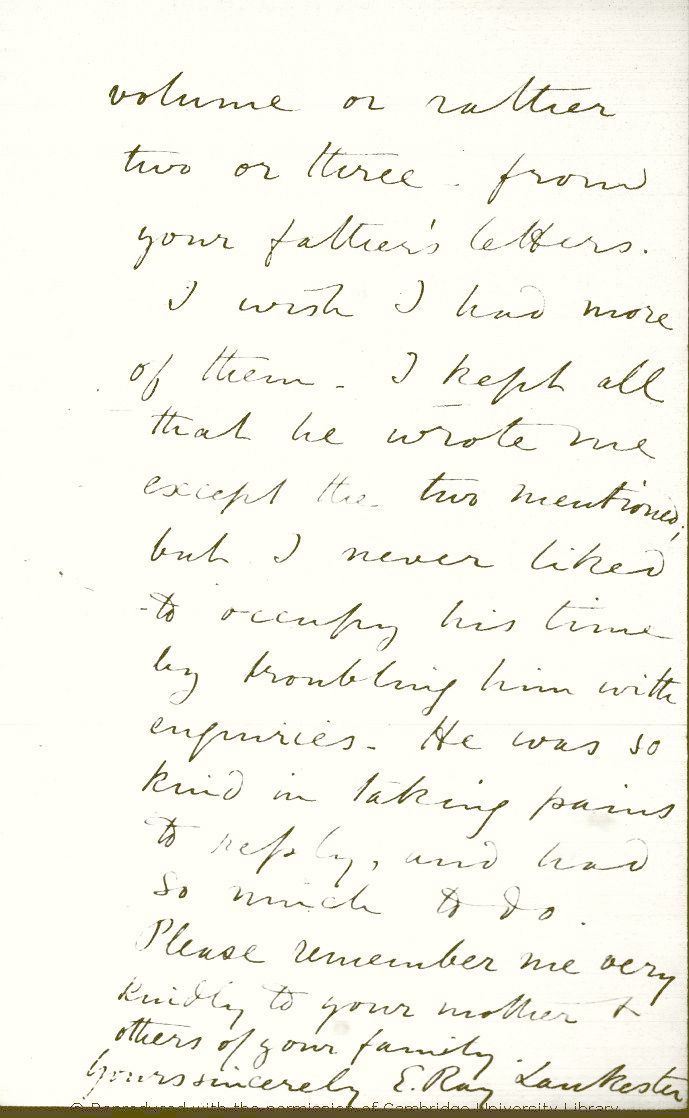 volume or rather
two or three - from
your father's letters.
I wish I had more
of them - I kept all
that he wrote me
except the two mentioned;
but I never liked
to occupy his time
by troubling him with
enquiries - He was so
kind in taking pains
to reply, and had
so much to do.
Please remember me very
kindly to your mother &
others of your family.
Yours sincerely E. Ray Lankester
© Reproduced with the permission of Cambridge University Library